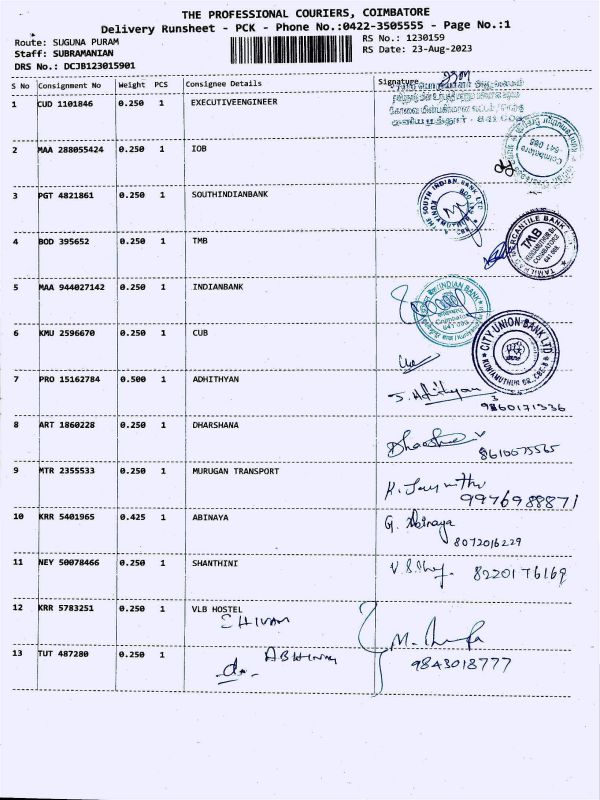 THE PROFESSIONAL COURIERS, COIMBATORE
Delivery Runsheet - PCK - Phone No.:0422-3505555 - Page No.:1
Route: SUGUNA PURAM RS No.: 1230159
Staff: SUBRAMANIAN RS Date: 23-Aug-2023
DRS No.: DCJB123015901
S No Consignment No Weight PCS Consignee Details Signature
1 CUD 1101846 0.250 1 EXECUTIVEENGINEER
2 MAA 288055424 0.250 1 IOB
Coimbatore
641 008
3 PGT 4821861 0.250 1 SOUTHINDIANBANK
THE SOUTH INDIAN BANK LTD
4 BOD 395652 0.250 1 TMB
TAMILNAD MERCANTILE BANK LTD
TMB
KUNIAMUTHUR Br.
COIMBATORE
641 008
5 MAA 944027142 0.250 1 INDIANBANK
INDIAN BANK
Coimbatore
641 008
6 KMU 2596670 0.250 1 CUB
CITY UNION BANK LTD
KUNIAMUTHUR BR., CBE-8
7 PRO 15162784 0.500 1 ADHITHYAN
J. Adhithyan
8 ART 1860228 0.250 1 DHARSHANA
8610075565
9 MTR 2355533 0.250 1 MURUGAN TRANSPORT
9976988871
10 KRR 5401965 0.425 1 ABINAYA
G. Abinaya
8072016229
11 NEY 50078466 0.250 1 SHANTHINI
8220176169
12 KRR 5783251 0.250 1 VLB HOSTEL
SHIVANI
13 TUT 487280 0.250 1
9843018777